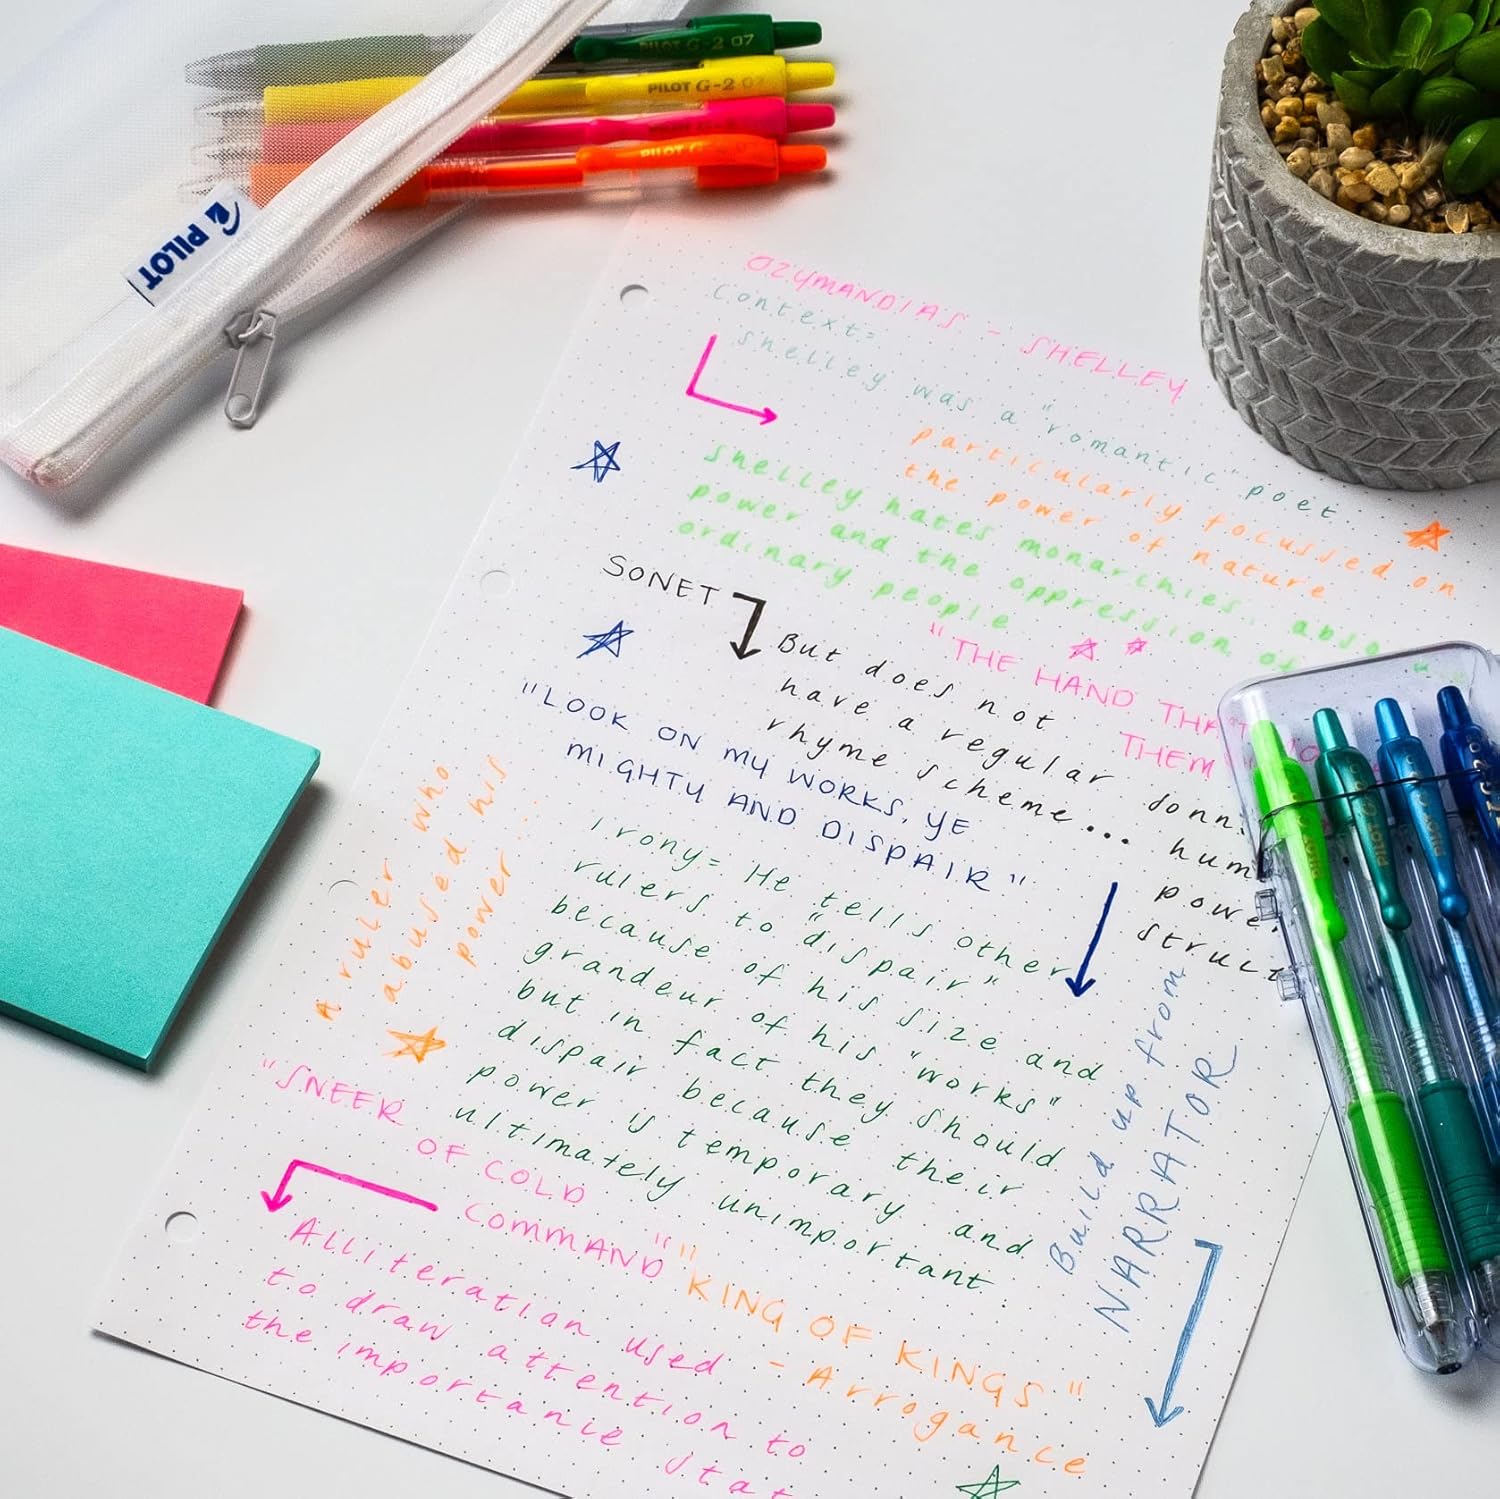 PILOT G-2 07
PILOT G-2 07
PILOT G
PILOT
OZYMANDIAS - SHELLEY
Context=
Shelley was a "romantic" poet.
particularly focussed on
the power of nature
Shelley hates monarchies,
power and the oppression of
ordinary people
SONET
But does not
have a regular
rhyme scheme...
"THE HAND
THEM
"LOOK ON MY WORKS, YE
MIGHTY AND DISPAIR"
A ruler who
abused his
power...
Irony= He tells other
rulers to "dispair"
because of his size and
grandeur of his "works"
but in fact they should
dispair because their
power is temporary and
ultimately unimportant.
Build up from
NARRATOR
"SNEER
OF COLD
COMMAND"
"KING OF KINGS"
- Arrogance
Alliteration used
to draw attention to
the importance
PILOT
PILOT